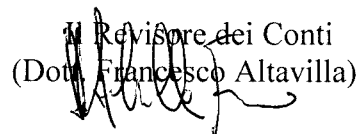 Il Revisore dei Conti
(Dott. Francesco Altavilla)